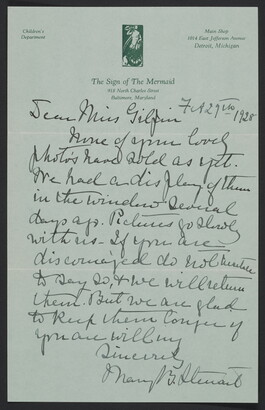 Children's
Department
Main Shop
1814 East Jefferson Avenue
Detroit, Michigan
The Sign of The Mermaid
918 North Charles Street
Baltimore, Maryland
Feb 29th 1928
Dear Miss Gilpin
None of your lovely
photo's have sold as yet.
We had a display of them
in the window several
days ago. Pictures go slowly
with us - If you are
discouraged do not hesitate
to say so, & we will return
them. But we are glad
to keep them longer if
you are willing
Sincerely
Mary B. Stewart